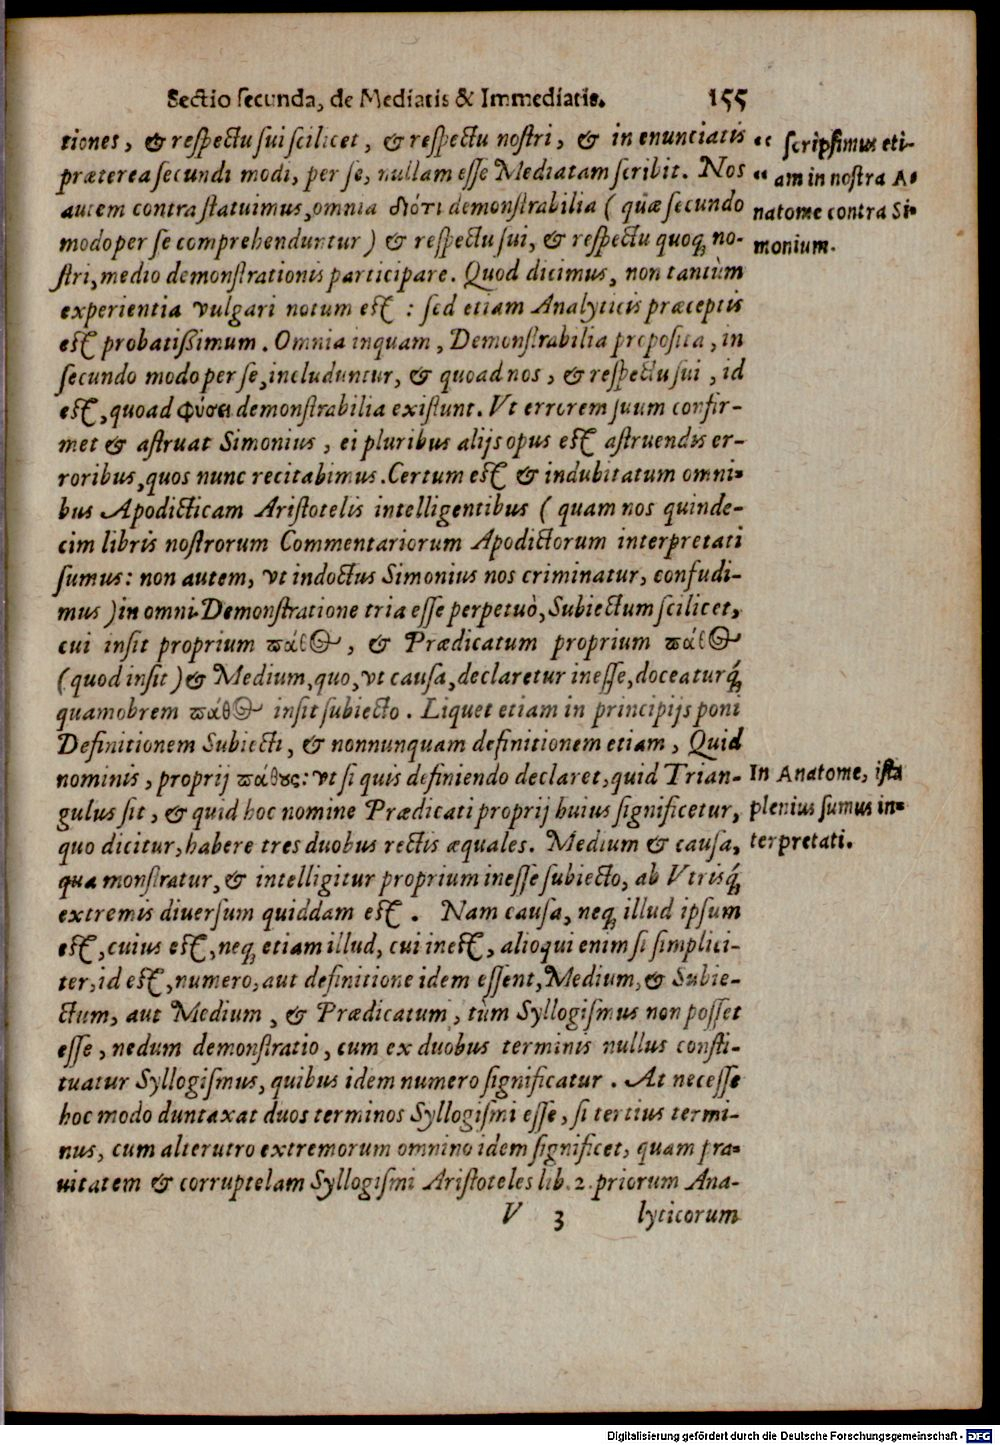 Sectio secunda, de Mediatis & Immediatis. 155
tiones, & respectu sui scilicet, & respectu nostri, & in enunciatis
præterea secundi modi, per se, nullam esse Mediatam scribit. Nos
autem contra statuimus, omnia διότι demonstrabilia ( quæ secundo
modo per se comprehenduntur ) & respectu sui, & respectu quoq; no-
stri, medio demonstrationis participare. Quod dicimus, non tantùm
experientia vulgari notum est : sed etiam Analyticis præceptis
est probatißimum. Omnia inquam, Demonstrabilia proposita, in
secundo modo per se, includuntur, & quoad nos, & respectu sui, id
est, quoad φύσει demonstrabilia existunt. Vt errorem suum confir-
met & astruat Simonius, ei pluribus alijs opus est astruendis er-
roribus, quos nunc recitabimus. Certum est & indubitatum omni-
bus Apodicticam Aristotelis intelligentibus ( quam nos quinde-
cim libris nostrorum Commentariorum Apodictorum interpretati
sumus: non autem, vt indoctus Simonius nos criminatur, confudi-
mus ) in omni Demonstratione tria esse perpetuò, Subiectum scilicet,
cui insit proprium πάθος, & Prædicatum proprium πάθος
( quod insit ) & Medium, quo, vt causa, declaretur inesse, doceaturq́;
quamobrem πάθος insit subiecto. Liquet etiam in principijs poni
Definitionem Subiecti, & nonnunquam definitionem etiam, Quid
nominis, proprij πάθους: vt si quis definiendo declaret, quid Trian-
gulus sit, & quid hoc nomine Prædicati proprij huius significetur,
quo dicitur, habere tres duobus rectis æquales. Medium & causa,
qua monstratur, & intelligitur proprium inesse subiecto, ab Vtrisq́;
extremis diuersum quiddam est. Nam causa, neq; illud ipsum
est, cuius est, neq; etiam illud, cui inest, alioqui enim si simplici-
ter, id est, numero, aut definitione idem essent, Medium, & Subie-
ctum, aut Medium, & Prædicatum, tùm Syllogismus non posset
esse, nedum demonstratio, cum ex duobus terminis nullus consti-
tuatur Syllogismus, quibus idem numero significatur. At necesse
hoc modo duntaxat duos terminos Syllogismi esse, si tertius termi-
nus, cum alterutro extremorum omnino idem significet, quam pra-
uitatem & corruptelam Syllogismi Aristoteles lib. 2. priorum Ana-
V 3 lyticorum
“ scripsimus eti-
“ am in nostra A-
natome contra Si-
monium.
In Anatome, ista
plenius sumus in-
terpretati.
Digitalisierung gefördert durch die Deutsche Forschungsgemeinschaft - DFG